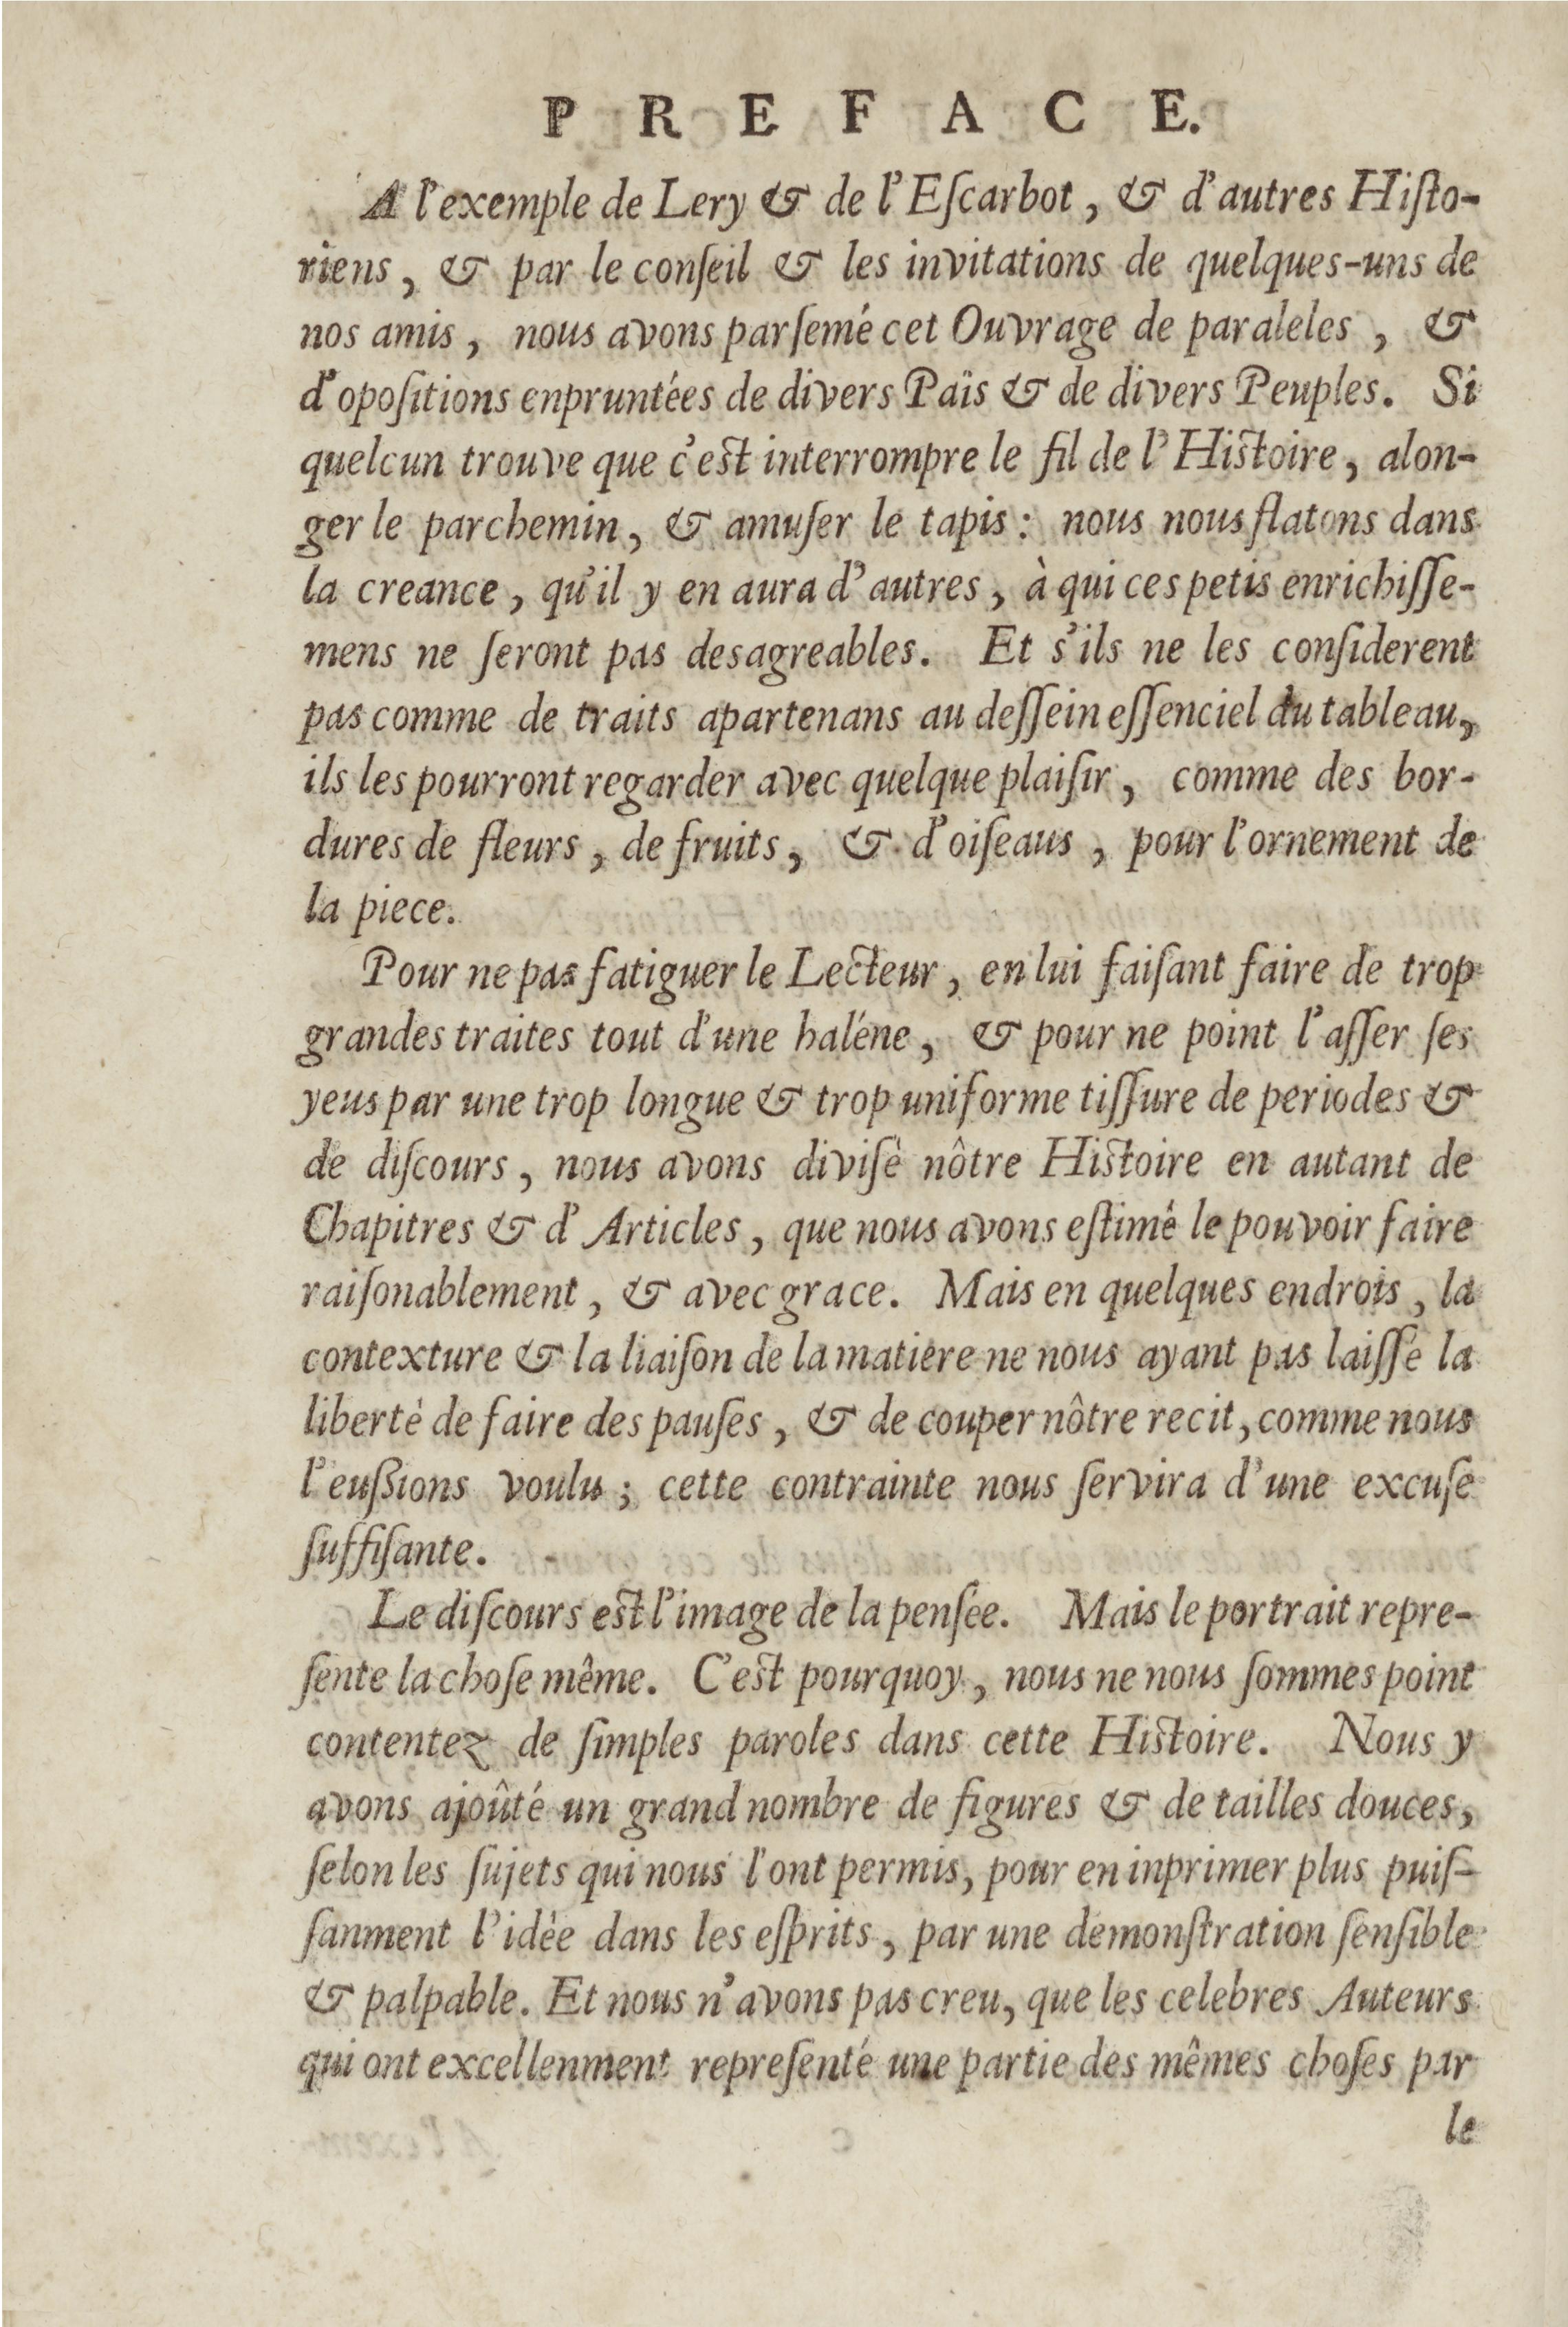 PREFACE.
A l'exemple de Lery & de l'Eſcarbot, & d'autres Hiſto-
riens, & par le conſeil & les invitations de quelques-uns de
nos amis, nous avons parſemé cet Ouvrage de paraleles, &
d'opoſitions enpruntées de divers Païs & de divers Peuples. Si
quelcun trouve que c'eſt interrompre le fil de l'Hiſtoire, alon-
ger le parchemin, & amuſer le tapis: nous nous flatons dans
la creance, qu'il y en aura d'autres, à qui ces petis enrichiſſe-
mens ne ſeront pas desagreables. Et s'ils ne les conſiderent
pas comme de traits apartenans au deſſein eſſenciel du tableau,
ils les pourront regarder avec quelque plaiſir, comme des bor-
dures de fleurs, de fruits, & d'oiſeaus, pour l'ornement de
la piece.
Pour ne pas fatiguer le Lecteur, en lui faiſant faire de trop
grandes traites tout d'une haléne, & pour ne point l'aſſer ſes
yeus par une trop longue & trop uniforme tiſſure de periodes &
de diſcours, nous avons diviſé nôtre Hiſtoire en autant de
Chapitres & d'Articles, que nous avons eſtimé le pouvoir faire
raiſonablement, & avec grace. Mais en quelques endrois, la
contexture & la liaiſon de la matiere ne nous ayant pas laiſſé la
liberté de faire des pauſes, & de couper nôtre recit, comme nous
l'eußions voulu; cette contrainte nous ſervira d'une excuſe
ſuffiſante.
Le diſcours eſt l'image de la penſée. Mais le portrait repre-
ſente la choſe même. C'eſt pourquoy, nous ne nous ſommes point
contentez de ſimples paroles dans cette Hiſtoire. Nous y
avons ajoûté un grand nombre de figures & de tailles douces,
ſelon les ſujets qui nous l'ont permis, pour en inprimer plus puiſ-
ſanment l'idèe dans les eſprits, par une demonſtration ſenſible
& palpable. Et nous n'avons pas creu, que les celebres Auteurs
qui ont excellenment repreſenté une partie des mêmes choſes par
le